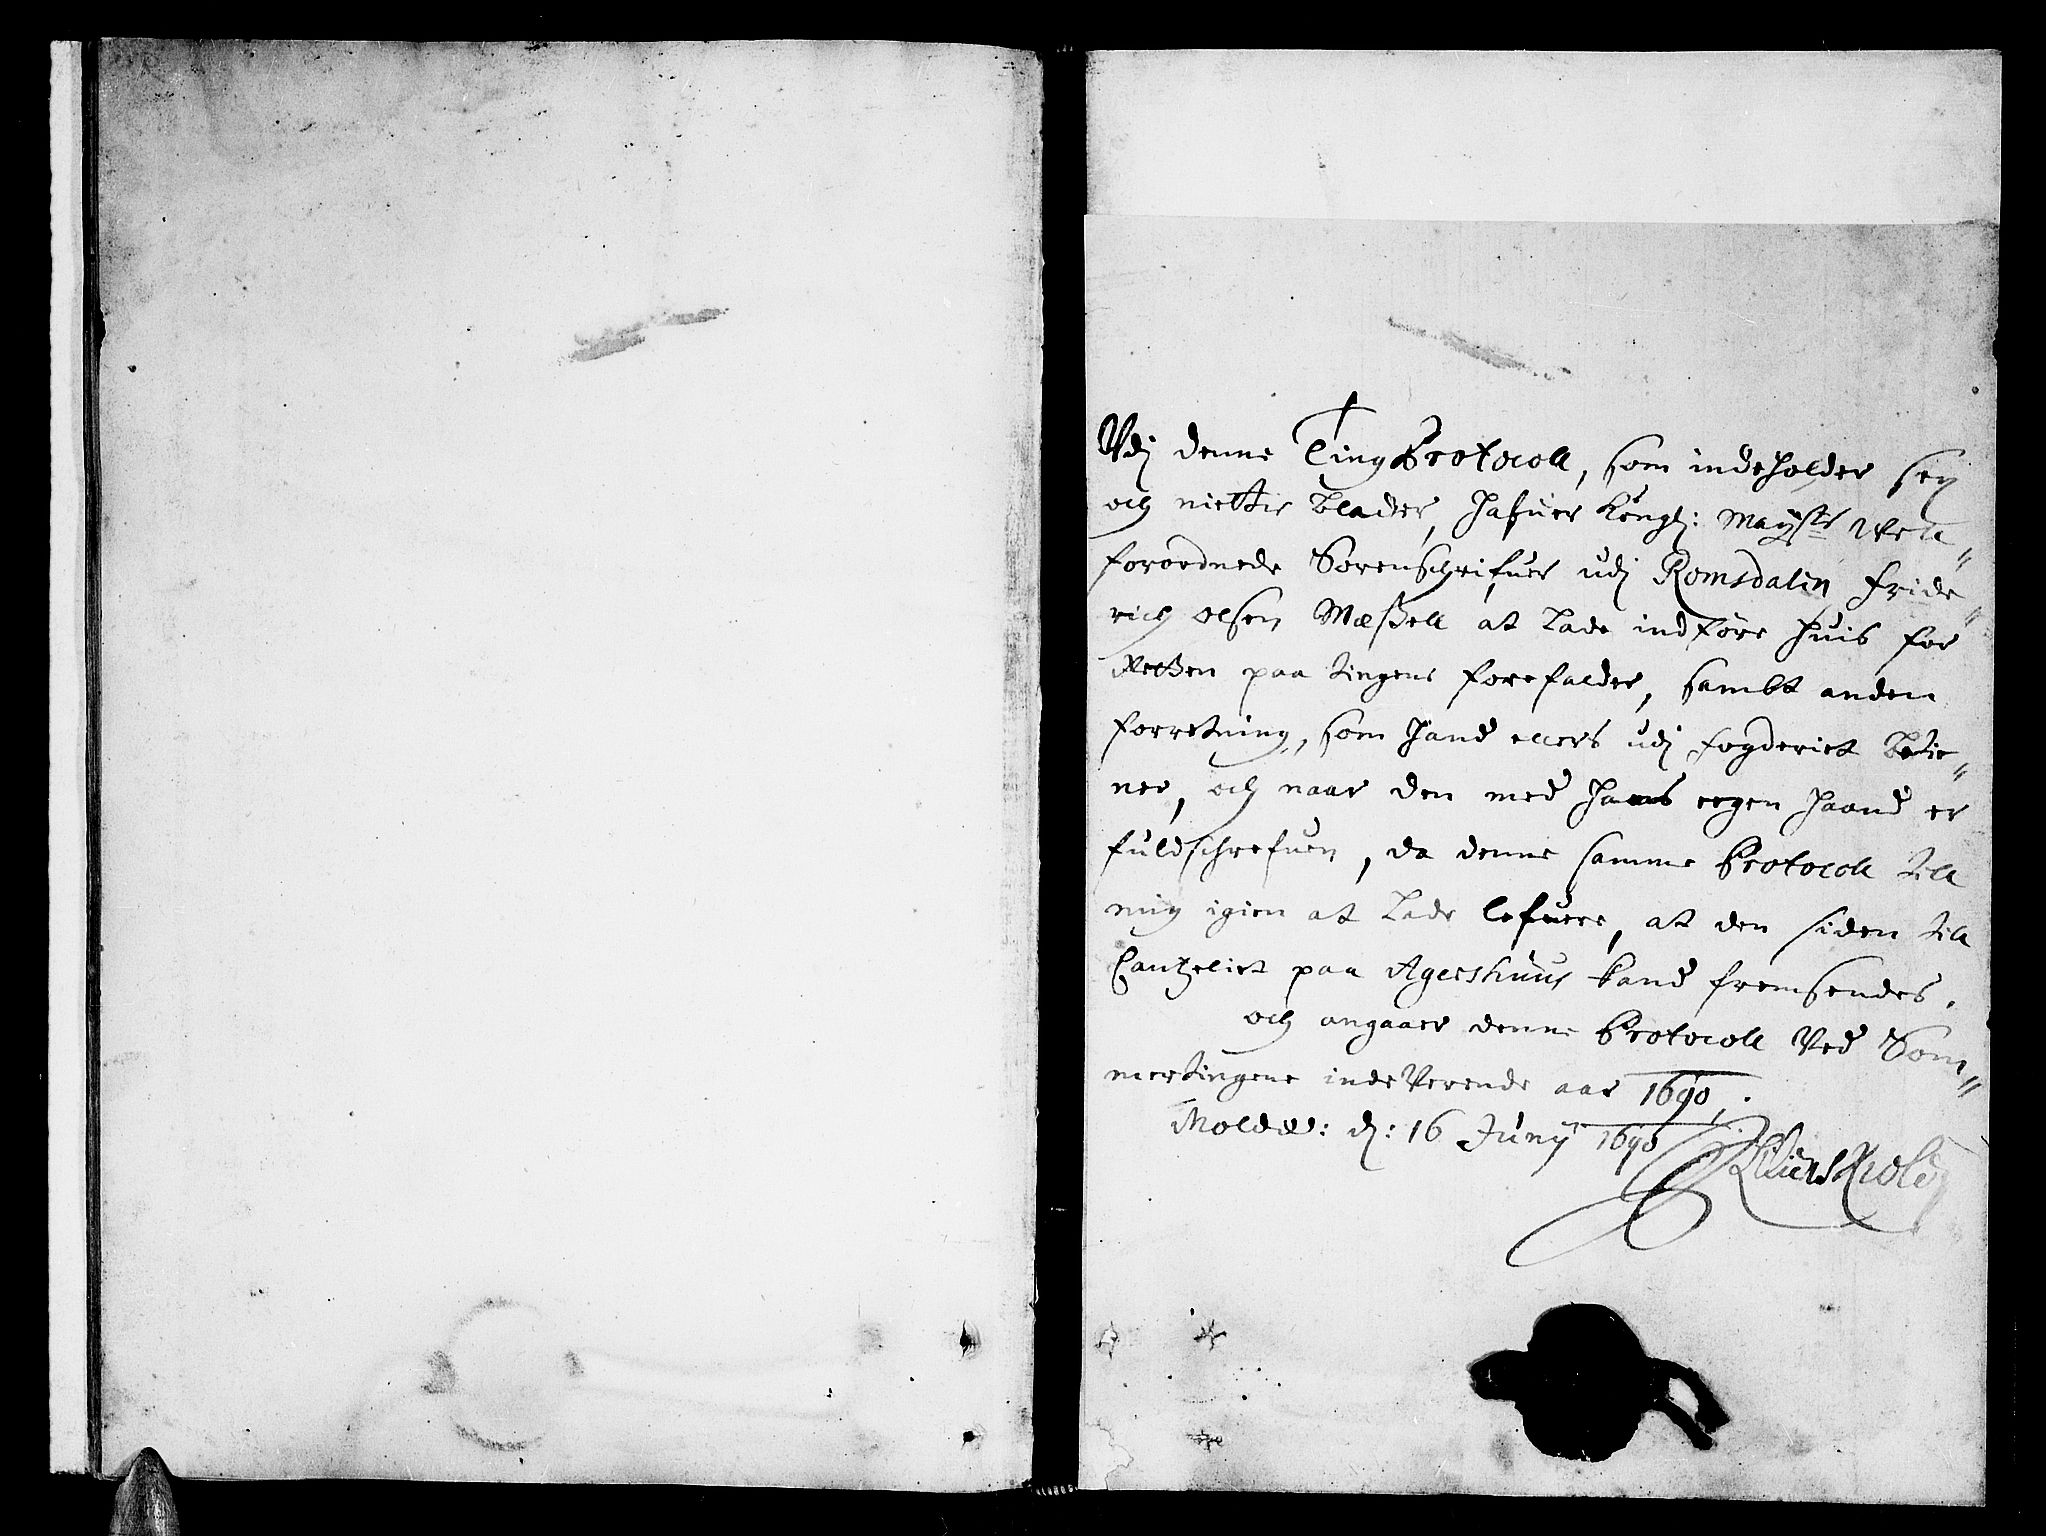 Vdj denne TingProtocoll, som indeholder sex
och nittie blader, hafuer Kongl: Mayst: Vell„
forordnede Sorenschrifuer udj Romsdalen Fride„
rich Olsen Meßell at lade indføre huis for
Retten paa tingene forefalder, sambt anden
forretning, som hand ellers udj fogderiet betie„
ner, och naar den med hans eegen haand er
fuldschrefuen, da denne samme Protocoll till
mig igien at lade lefuere, at den siden till
Cantzeliet paa Agershuus kand fremsendes.
och angaaer denne Protocoll Ved Som„
mertingene indeVerende aar 1690.
Molde: d: 16 Junij 1690